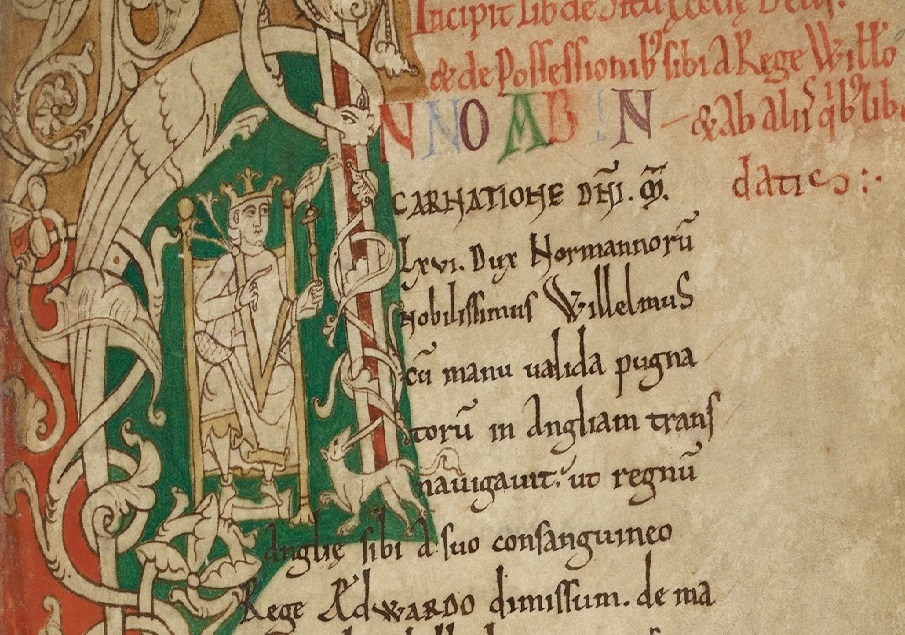 Incipit lib de Situ Ecclie Belli.
& de Possessionib' sibi a Rege Willo
NNO AB IN — & ab aliis q'b' lib
CARNATIONE DNI. M. datis:.
lxvi. Dux Normannorū
nobilissimus Willelmus
cū manu valida pugna
torū in Angliam trans
navigavit. ut regnū
Anglię sibi a suo consanguineo
Rege Ædwardo dimissum. de ma